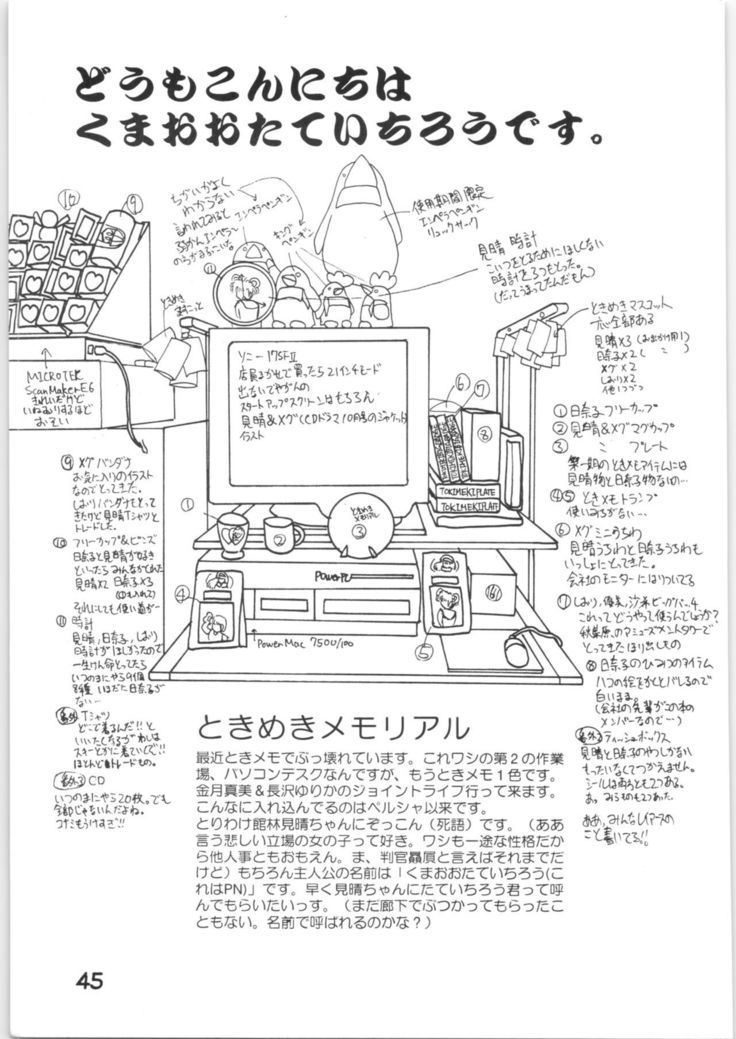 どうもこんにちは
くまおおたていちろうです。
ちがいがよく
わからない
言われてみると
エンペラペンギン
キング
ペンギン
使用期間限定
エンペラペンギン
リュックサック
見晴 時計
こいつをとるためにほしくない
時計を3つもとった。
(だってうまってたんだもん)
⑩
⑨
⑪
ときめき
MICROTEK
ScanMaker E6
きれいだけど
いねむりするほど
おそい
ソニー 17SFⅡ
店員まかせで買ったら21インチモード
出ないでやんの
スタートアップスクリーンはもちろん
見晴&メグ(CDドラマ10月号のジャケット)
イラスト
⑥
⑦
⑧
TOKIMEKIPLATE
TOKIMEKIPLATE
ときめきマスコット
六全部ある
見晴×3(おまかせ用1)
日奈子×2
メグ×2
しおり×2
他1つづつ
①日奈子フリーカップ
②見晴&メグマグカップ
③ 〃 プレート
第一期のときメモアイテムには
見晴物と日奈子物ないの…
④⑤ ときメモトランプ
使いみちがない…
⑥メグミニうちわ
見晴うちわと日奈子うちわも
いっしょにとってきた。
会社のモニターにはりついてる
⑦しおり,優美,沙希ビッグバー4
これってどうやって使うんでしょうか?
秋葉原のアミューズメントタワーで
とってきたほり出しもの
⑧日奈子のひみつのアイテム
八つの絵をかくとバレるので
白いまま。
(会社の先輩がこの本の
メンバーなので…)
番外3 ティッシュボックス
見晴と日奈子のやつしかない
もったいなくてつかえません。
シールは両方とも2つある。
あ。みうちのも2つあった
ああ,みんなレイアースの
こと書いてる!!
⑨ メグバンダナ
お気に入りのイラスト
なのでとってきた。
しおりバンダナもとって
きたけど見晴Tシャツと
トレードした。
⑩ フリーカップ&ビンズ
日奈子と見晴が好き
といったらみんながくれた
見晴×2 日奈子×3
それにしても使い道が…
⑪ 時計
見晴,日奈子,しおり
時計がほしかったので
一生けん命とってたら
いつのまにやら9個
8種 いまだに日奈子が
ない…
番外1 Tシャツ
どこで着るんだ!!と
いいたくなるがわしは
スキーとかに着ていくぞ!!
ほとんどトレードもの。
番外2 CD
いつのまにやら20枚。でも
全部じゃないんだよね。
コナミもうけすぎ!!
①
②
ときめき
メモリアル
③
④
PowerPC
⑥
↑
PowerMac 7500/100
⑤
ときめきメモリアル
最近ときメモでぶっ壊れています。これワシの第2の作業
場、パソコンデスクなんですが、もうときメモ1色です。
金月真美&長沢ゆりかのジョイントライブ行って来ます。
こんなに入れ込んでるのはペルシャ以来です。
とりわけ館林見晴ちゃんにぞっこん(死語)です。(ああ
言う悲しい立場の女の子って好き。ワシも一途な性格だか
ら他人事ともおもえん。ま、判官贔屓と言えばそれまでだ
けど)もちろん主人公の名前は「くまおおたていちろう(こ
れはPN)」です。早く見晴ちゃんにたていちろう君って呼
んでもらいたいっす。(まだ廊下でぶつかってもらったこ
ともない。名前で呼ばれるのかな?)
45